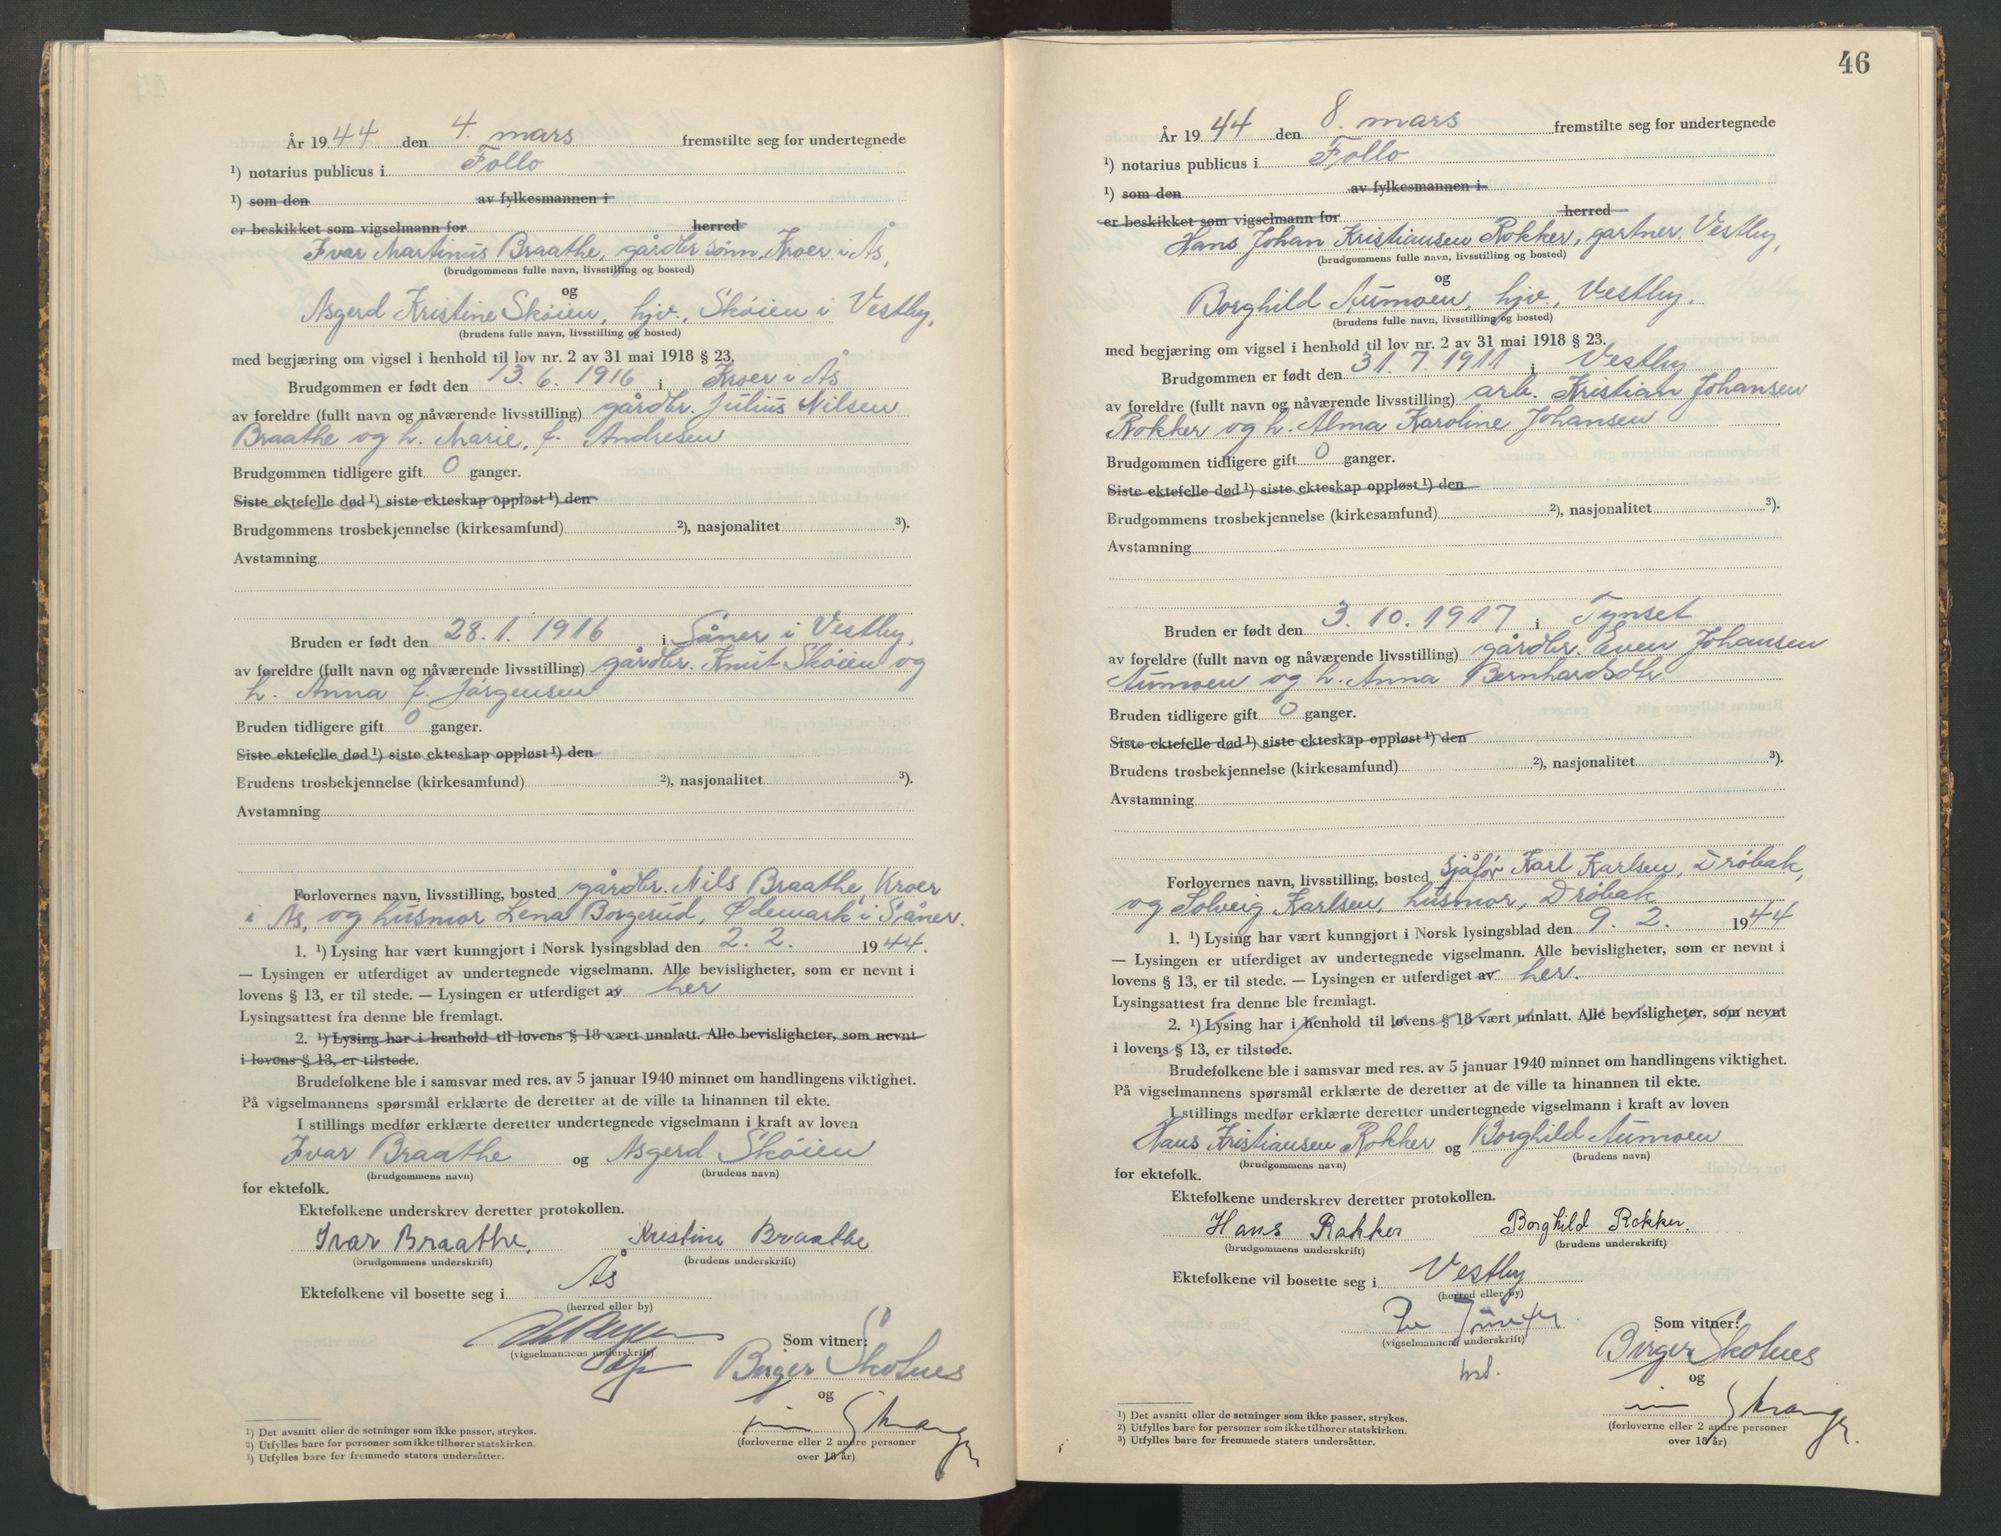 År 1944 den 4. mars fremstilte seg for undertegnede
¹) notarius publicus i Follo
¹) som den av fylkesmannen i
er beskikket som vigselmann for herred
Ivar Martinus Braathe, gårdbr. sønn, Kroer i Ås,
(brudgommens fulle navn, livsstilling og bosted)
og
Asgerd Kristine Skøien, hjv., Skøien i Vestby,
(brudens fulle navn, livsstilling og bosted)
med begjæring om vigsel i henhold til lov nr. 2 av 31 mai 1918 § 23.
Brudgommen er født den 13. 6. 1916 i Kroer i Ås
av foreldre (fullt navn og nåværende livsstilling) gårdbr. Julius Nilsen
Braathe og h. Marie, f. Andresen
Brudgommen tidligere gift 0 ganger.
Siste ektefelle død ¹) siste ekteskap oppløst ¹) den
Brudgommens trosbekjennelse (kirkesamfund) ²), nasjonalitet ³).
Avstamning
Bruden er født den 28. 1. 1916 i Såner i Vestby,
av foreldre (fullt navn og nåværende livsstilling) gårdbr. Knut Skøien og
h. Anna f. Jørgensen
Bruden tidligere gift 0 ganger.
Siste ektefelle død ¹) siste ekteskap oppløst ¹) den
Brudens trosbekjennelse (kirkesamfund) ²), nasjonalitet ³).
Avstamning
Forlovernes navn, livsstilling, bosted gårdbr. Nils Braathe, Kroer
i Ås, og husmor Lena Borgerud, Ødemark i Såner.
1. ¹) Lysing har vært kunngjort i Norsk lysingsblad den 2. 2. 1944.
— Lysingen er utferdiget av undertegnede vigselmann. Alle bevisligheter, som er nevnt i
lovens § 13, er til stede. — Lysingen er utferdiget av her
Lysingsattest fra denne ble fremlagt.
2. ¹) Lysing har i henhold til lovens § 18 vært unnlatt. Alle bevisligheter, som nevnt
i lovens § 13, er tilstede.
Brudefolkene ble i samsvar med res. av 5 januar 1940 minnet om handlingens viktighet.
På vigselmannens spørsmål erklærte de deretter at de ville ta hinannen til ekte.
I stillings medfør erklærte deretter undertegnede vigselmann i kraft av loven
Ivar Braathe og Asgerd Skøien
(brudgommens navn) (brudens navn)
for ektefolk.
Ektefolkene underskrev deretter protokollen.
Ivar Braathe. Kristine Braathe
(brudgommens underskrift) (brudens underskrift)
Ektefolkene vil bosette seg i Ås
(herred eller by)
Som vitner:
(vigselmannens underskrift)
Birger Skolnes
og
(forloverne eller 2 andre personer
over 18 år)
¹) Det avsnitt eller de setninger som ikke passer, strykes.
²) Utfylles bare for personer som ikke tilhører statskirken.
³) Utfylles bare for fremmede staters undersåtter.
46
År 1944 den 8. mars fremstilte seg for undertegnede
¹) notarius publicus i Follo
¹) som den av fylkesmannen i
er beskikket som vigselmann for herred
Hans Johan Kristiansen Rokker, gartner, Vestby,
(brudgommens fulle navn, livsstilling og bosted)
og
Borghild Aumoen, hjv., Vestby,
(brudens fulle navn, livsstilling og bosted)
med begjæring om vigsel i henhold til lov nr. 2 av 31 mai 1918 § 23.
Brudgommen er født den 31. 7. 1911 i Vestby
av foreldre (fullt navn og nåværende livsstilling) arb. Kristian Johansen
Rokker og h. Alma Karoline Johansen
Brudgommen tidligere gift 0 ganger.
Siste ektefelle død ¹) siste ekteskap oppløst ¹) den
Brudgommens trosbekjennelse (kirkesamfund) ²), nasjonalitet ³).
Avstamning
Bruden er født den 3. 10. 1917 i Tynset
av foreldre (fullt navn og nåværende livsstilling) gårdbr. Even Johansen
Aumoen og h. Anna Bernhardsdtr
Bruden tidligere gift 0 ganger.
Siste ektefelle død ¹) siste ekteskap oppløst ¹) den
Brudens trosbekjennelse (kirkesamfund) ²), nasjonalitet ³).
Avstamning
Forlovernes navn, livsstilling, bosted sjåfør Karl Karlsen, Drøbak,
og Solveig Karlsen, husmor, Drøbak
1. ¹) Lysing har vært kunngjort i Norsk lysingsblad den 9. 2. 1944
— Lysingen er utferdiget av undertegnede vigselmann. Alle bevisligheter, som er nevnt i
lovens § 13, er til stede. — Lysingen er utferdiget av her.
Lysingsattest fra denne ble fremlagt.
2. ¹) Lysing har i henhold til lovens § 18 vært unnlatt. Alle bevisligheter, som nevnt
i lovens § 13, er tilstede.
Brudefolkene ble i samsvar med res. av 5 januar 1940 minnet om handlingens viktighet.
På vigselmannens spørsmål erklærte de deretter at de ville ta hinannen til ekte.
I stillings medfør erklærte deretter undertegnede vigselmann i kraft av loven
Hans Kristiansen Rokker og Borghild Aumoen
(brudgommens navn) (brudens navn)
for ektefolk.
Ektefolkene underskrev deretter protokollen.
Hans Rokker Borghild Rokker.
(brudgommens underskrift) (brudens underskrift)
Ektefolkene vil bosette seg i Vestby
(herred eller by)
Som vitner:
(vigselmannens underskrift)
Birger Skolnes
og
(forloverne eller 2 andre personer
over 18 år)
¹) Det avsnitt eller de setninger som ikke passer, strykes.
²) Utfylles bare for personer som ikke tilhører statskirken.
³) Utfylles bare for fremmede staters undersåtter.